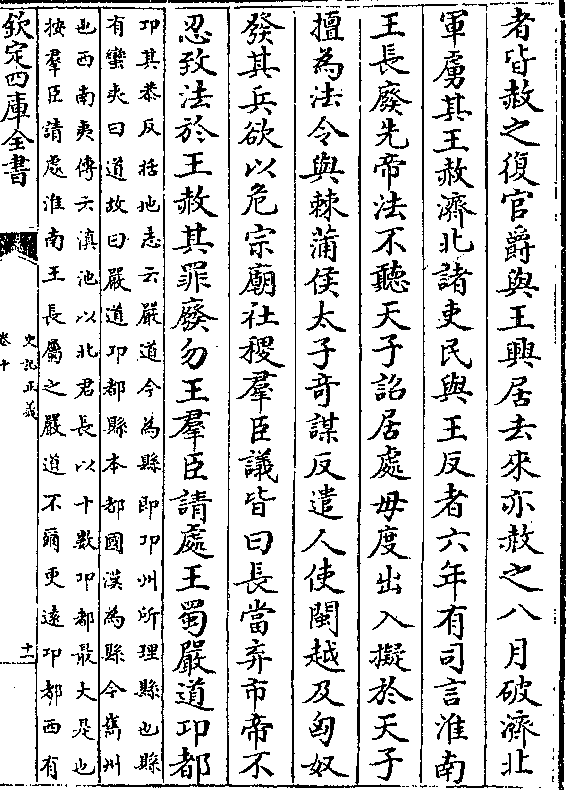 者皆赦之復官爵與王興居去來亦赦之八月破濟北
軍虜其王赦濟北諸吏民與王反者六年有司言淮南
王長廢先帝法不聽天子詔居處毋度出入擬於天子
擅為法令與棘蒲侯太子奇謀反遣人使閩越及匈奴
發其兵欲以危宗廟社稷羣臣議皆曰長當弃市帝不
忍致法於王赦其罪廢勿王羣臣請處王蜀嚴道邛都
邛其恭反括地志云嚴道今為縣即邛州所理縣也縣
有蠻夷曰道故曰嚴道邛都縣本邛都國漢為縣今巂州
也西南夷傳云滇池以北君長以十數邛都最大是也
按羣臣請處淮南王長屬之嚴道不爾更遠邛都西有
欽定四庫全書
史記正義
卷十
十一